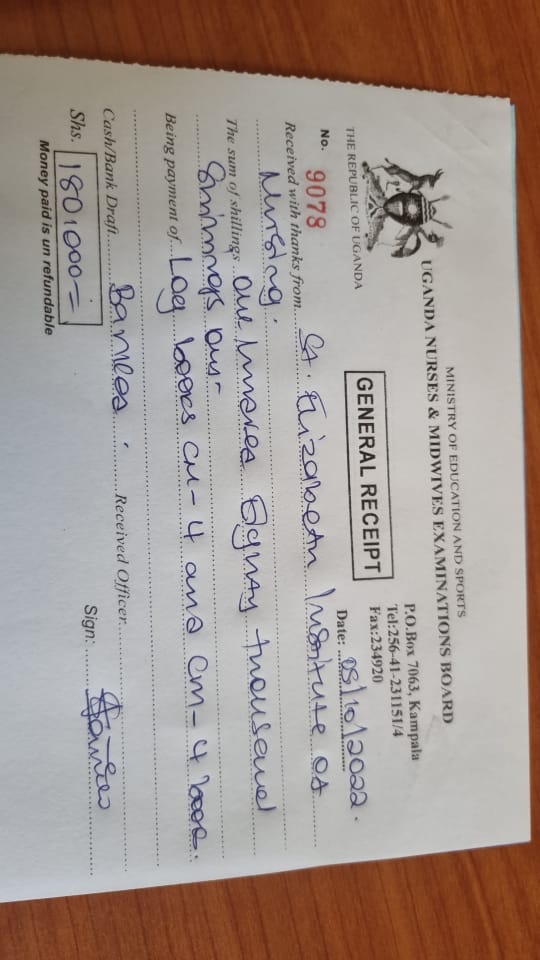 MINISTRY OF EDUCATION AND SPORTS
UGANDA NURSES & MIDWIVES EXAMINATIONS BOARD
P.O.Box 7063, Kampala
Tel:256-41-231151/4
Fax:234920
THE REPUBLIC OF UGANDA
GENERAL RECEIPT
Date: 05/10/2022.
No. 9078
Received with thanks from St. Elizabeth Institute of
Nursing.
The sum of shillings one hundred Eighty thousand
Shillings only-
Being payment of Log books CM-4 and CM-4 book.
Cash/Bank Draft Banked. Received Officer
Shs. 180,000=
Sign:
Money paid is un refundable